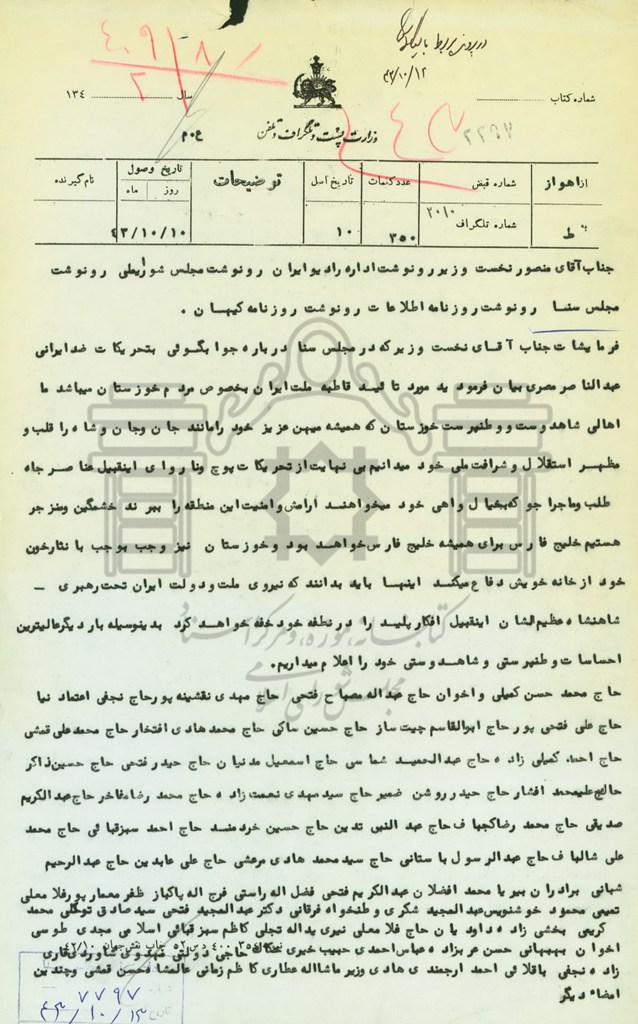 در پرونده مربوط بایگانی شود
۴۳/۱۰/۱۲
۴۰۹/۸/
۲
سال ........ ۱۳۴
شماره کتاب
وزارت پست و تلگراف و تلفن
ع۰م
۲۲۶۷
از اهواز
شماره قبض
عده کلمات
تاریخ اصل
توضیحات
تاریخ وصول
روز
ماه
نام گیرنده
به ط
شماره تلگراف ۲۰۱۰
۳۵۰
۱۰
۴۳/۱۰/۱۰
جناب آقای منصور نخست وزیر رونوشت اداره رادیو ایران رونوشت مجلس شورایملی رونوشت
مجلس سنا رونوشت روزنامه اطلاعات رونوشت روزنامه کیهان .
فرمایشات جناب آقای نخست وزیر که در مجلس سنا درباره جوابگوئی بتحریکات ضد ایرانی
عبدالناصر مصری بیان فرمودید مورد تائید قاطبه ملت ایران بخصوص مردم خوزستان میباشد ما
اهالی شاهدوست و وطنپرست خوزستان که همیشه میهن عزیز خود را مانند جان و جان و شاه را قلب و
مظهر استقلال و شرافت ملی خود میدانیم بی نهایت از تحریکات پوچ و ناروای اینقبیل عناصر جاه
طلب و ماجراجو که بخیال واهی خود میخواهند ارامش و امنیت این منطقه را ببرند خشمگین و منزجر
هستیم خلیج فارس برای همیشه خلیج فارس خواهد بود و خوزستان نیز وجب بوجب با نثار خون
خود از خانه خویش دفاع میکند اینها باید بدانند که نیروی ملت و دولت ایران تحت رهبری –
شاهنشاه عظیم الشان اینقبیل افکار پلید را در نطفه خود خفه خواهد کرد بدینوسیله بار دیگر عالیترین
احساسات وطنپرستی و شاهدوستی خود را اعلام میداریم.
حاج محمد حسن کمیلی و اخوان حاج عبداله مصباح فتحی حاج مهدی نقشینه پور حاج نجفی اعتماد نیا
حاج علی فتحی پور حاج ابوالقاسم چیت ساز حاج حسین ساکی حاج محمد هادی افتخار حاج محمد علی قمشی
حاج احمد کمیلی زاده حاج عبدالحمید شماسی حاج اسمعیل مدنیان حاج حیدر فتحی حاج حسین ذاکر
حاج علیمحمد افشار حاج حیدر روشن ضمیر حاج سید مهدی نعمت زاده حاج محمد رضا مفاخر حاج عبدالکریم
صدیقی حاج محمد رضا کجباف حاج عبد النبی تدین حاج حسین خردمند حاج احمد سبزقبائی حاج محمد
علی شالباف حاج عبدالرسول باستانی حاج سید محمد هادی مرعشی حاج علی عابدین حاج عبدالرحیم
شبانی برادران بیریا محمد افضلان عبدالکریم فتحی فضل اله راستی فرج اله پاکباز ظفر معمار پور فلا معلی
تمیمی محمود خوشنویس عبدالمجید شکری و طنخواه فرقانی دکتر عبدالمجید فتحی سید صادق توکلی محمد
کریمی بخشی زاده داودیان حاج فلا معلی نیری یداله تجلی کاظم سبزقبائی اسلامی مجدی طوسی
اخوان بهبهانی حسن عربزاده عباس احمدی حبیب خیری حاجی دولتی مهدوی
زاده نجفی باقلائی احمد ارجمندی هادی وزیر ماشااله عطاری کاظم زمانی عالمشا محسن قمشی و چندین
امضاء دیگر
۷۷۹۷
۴۳/۱۰/۱۳
کتابخانه، موزه و مرکز اسناد
مجلس شورای اسلامی